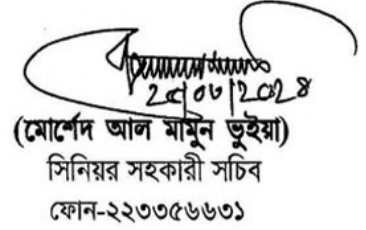 (মোর্শেদ আল মামুন ভুইয়া)
সিনিয়র সহকারী সচিব
ফোন-২২৩৩৫৬৬৩১